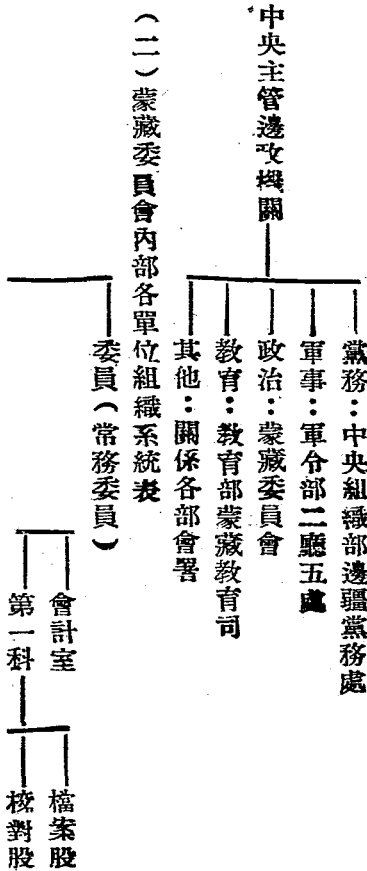 中央主管邊政機關
黨務：中央組織部邊疆黨務處
軍事：軍令部二廳五處
政治：蒙藏委員會
教育：教育部蒙藏教育司
其他：關係各部會署
（二）蒙藏委員會內部各單位組織系統表
委員（常務委員）
會計室
第一科
檔案股
校對股